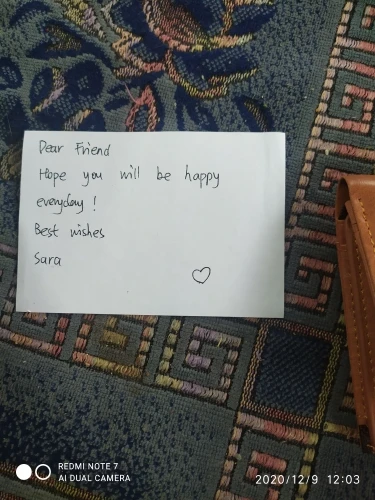 Dear Friend
Hope you will be happy
everyday !
Best wishes
Sara
REDMI NOTE 7
AI DUAL CAMERA
2020/12/9 12:03